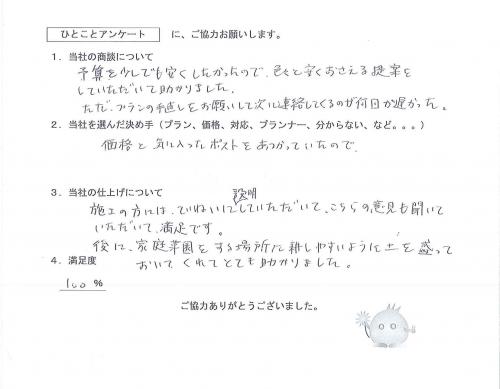 ひとことアンケート に、ご協力お願いします。
1．当社の商談について
予算を少しでも安くしたかったので、色々と安くおさえる提案を
していただいて助かりました。
ただ、プランの手直しをお願いして次に連絡してくるのが何日か遅かった。
2．当社を選んだ決め手（プラン、価格、対応、プランナー、分からない、など。。。）
価格と気に入ったポストをあつかっていたので。
3．当社の仕上げについて
施工の方には、ていねいに説明していただいて、こちらの意見も聞いて
いただいて、満足です。
後に、家庭菜園をする場所に耕しやすいように土を盛って
おいてくれてとても助かりました。
4．満足度
100 %
ご協力ありがとうございました。